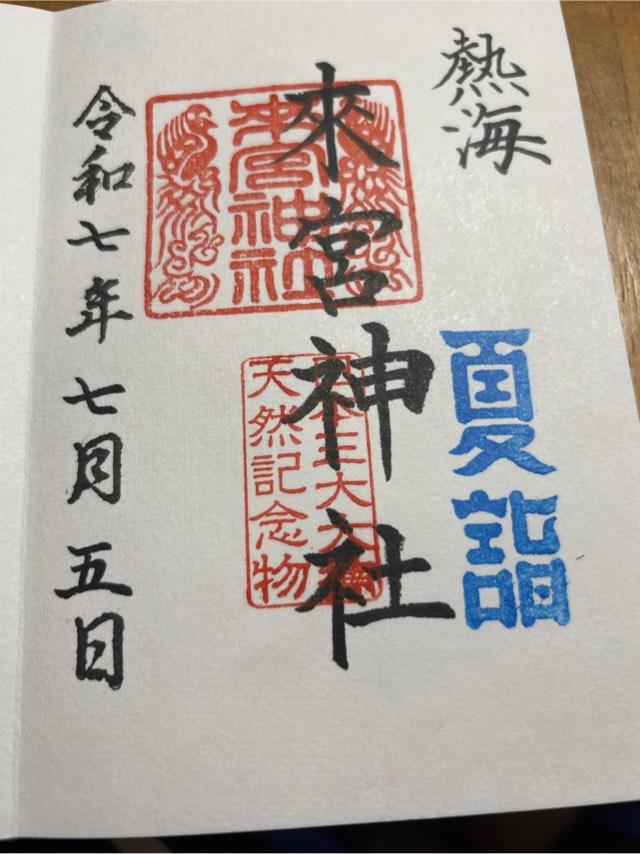 熱海
夏詣
來宮神社
來宮神社
日本三大大楠
天然記念物
令和七年 七月 五日